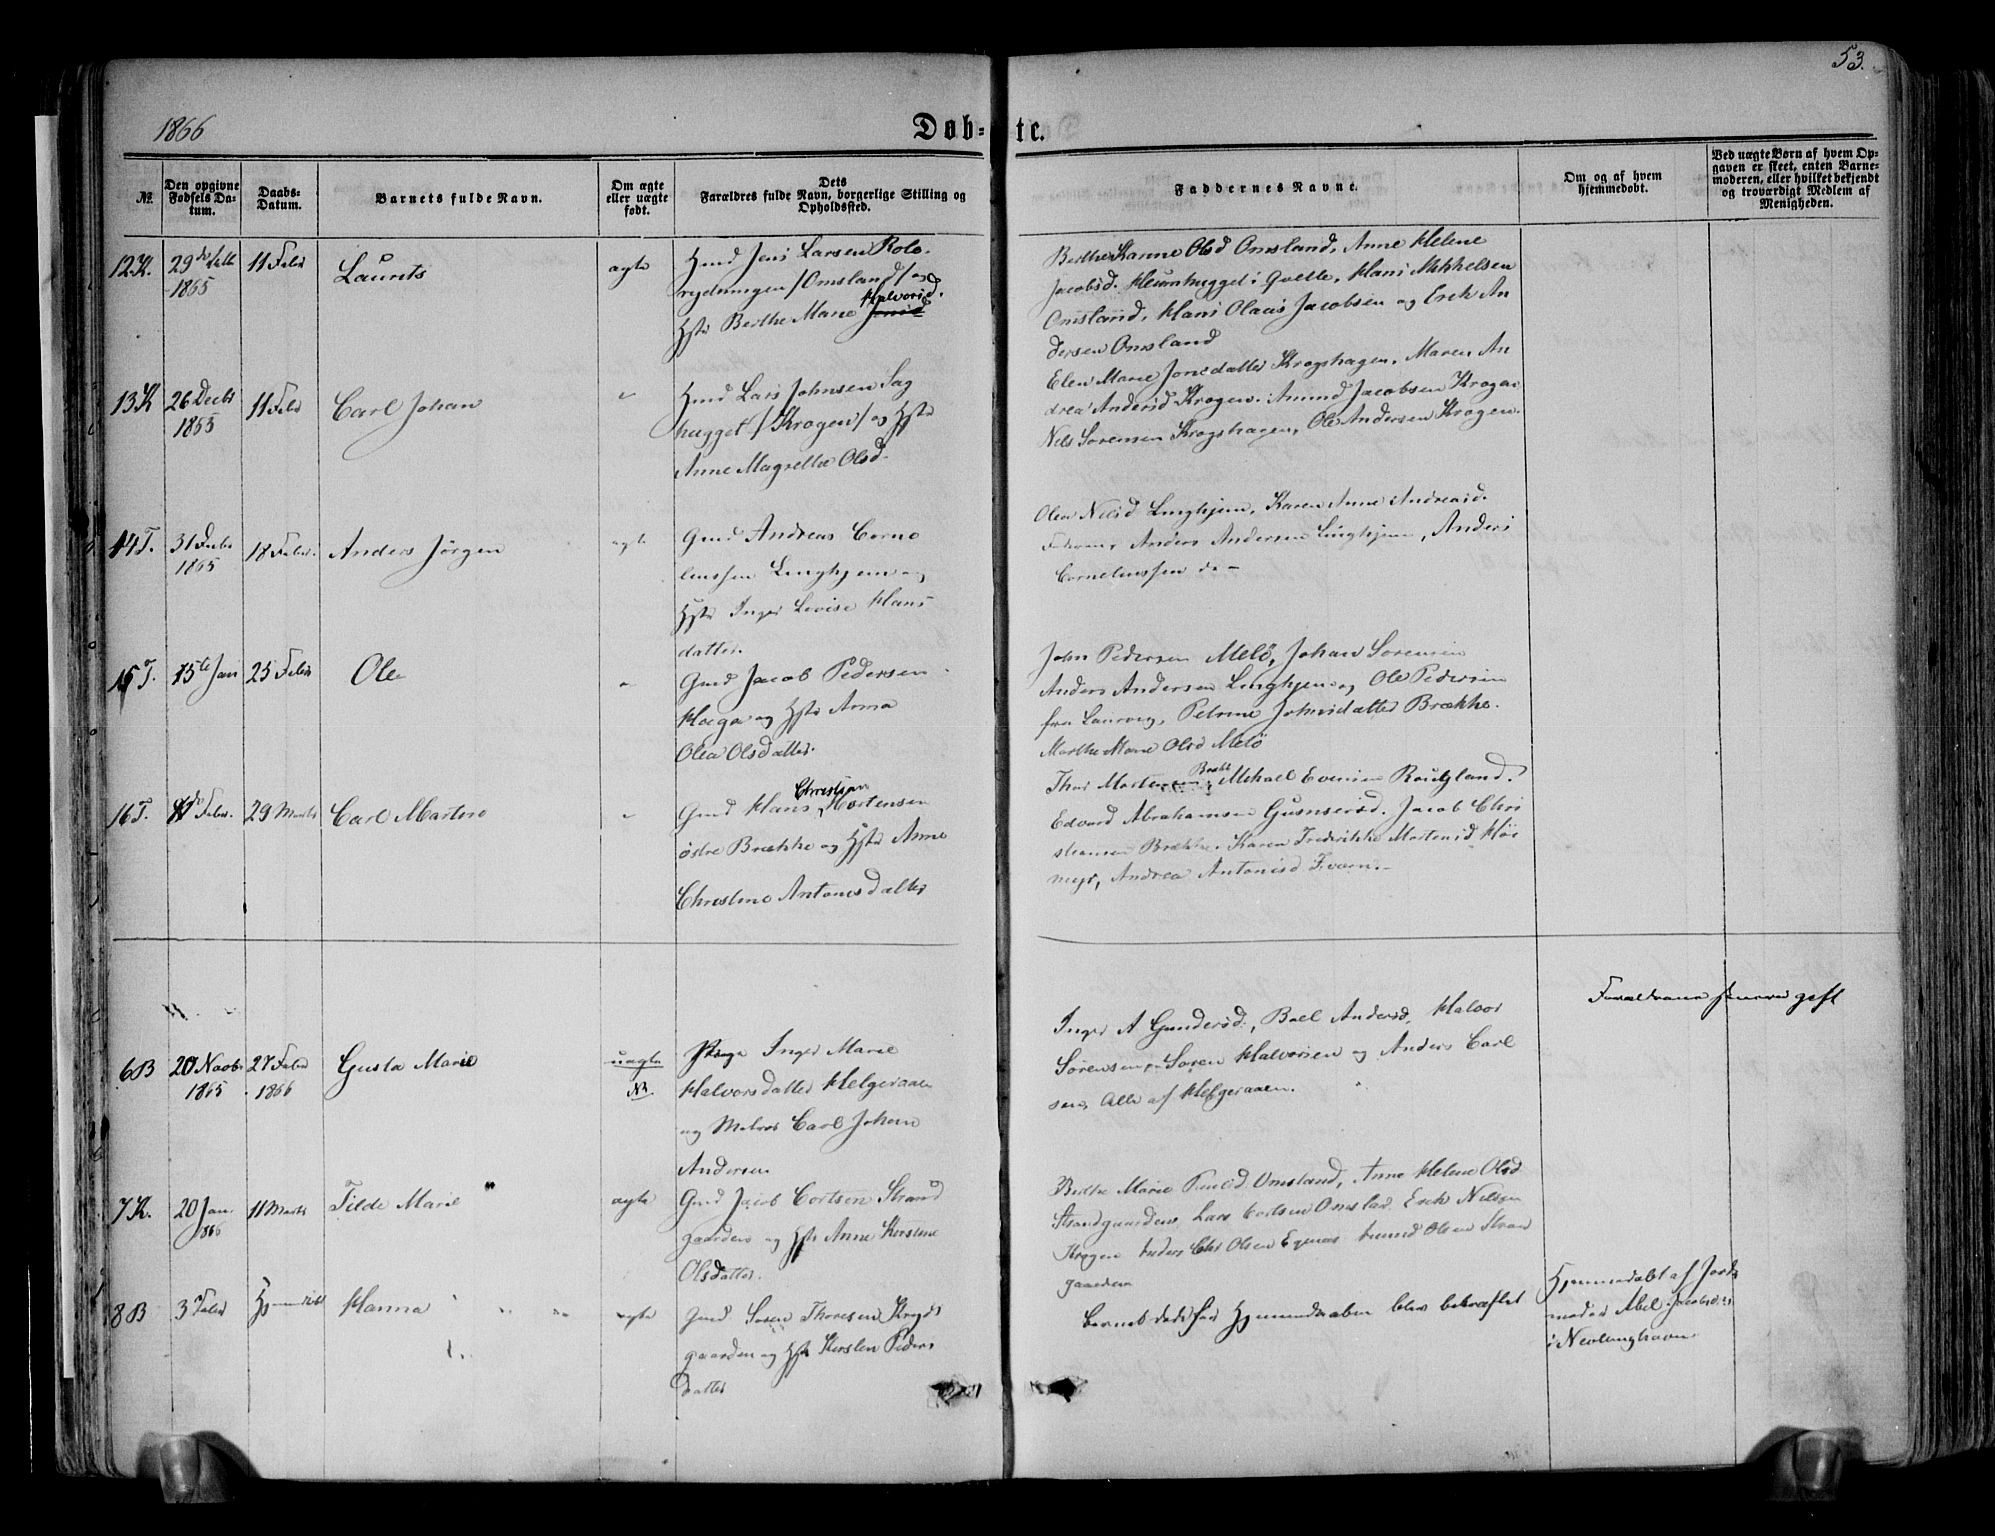 53.
1866
Døb-
te.
No.
Den opgivne
Fødsels Da-
tum.
Daabs-
Datum.
Barnets fulde Navn.
Om ægte
eller uægte
født.
Dets
Forældres fulde Navn, borgerlige Stilling og
Opholdssted.
Faddernes Navne.
Om og af hvem
hjemmedøbt.
Ved uægte Børn af hvem Op-
gaven er skeet, enten Barne-
moderen, eller hvilket bekjendt
og troværdigt Medlem af
Menigheden.
12.K.
29
1865
11 Febr
Laurits
ægte
Hmd Jens Larsen Rolo-
rydningen /Omsland/ og
Halvorsd.
Hstr Berthe Marie
Berthe Hanne Olsd Omsland, Anne Helene
Jacobsd. Kleunhugget i Qvelle, Hans Mikkelsen
Omsland, Hans Olaus Jacobsen og Erik An
dersen Omsland
13K
26 Decbr
1865
11 Febr
Carl Johan
Hmd Lars Johnsen Sag
hugget /Krogen/ og Hstr
Anne Magrethe Olsd.
Elen Marie Jonsdatter Krogshagen, Maren An
drea Andersd Krogen. Amund Jacobsen Krogen
Nils Sørensen Krogshagen, Ole Andersen Krogen.
14T.
31
1865
18 Febr.
Anders Jörgen
ægte
Gmd Andreas Corne
liussen Linghjem og
Hstr Inger Lovise Hans
datter.
Olea Nilsd Linghjem, Karen Anne Andreasd.
Anders Andersen Linghjem, Anders
Corneliussen do -
15T.
15te Jan
25 Febr
Ole
Gmd Jacob Pedersen
Haga og Hstr Anna
Olea Olsdatter.
John Pedersen Melö, Johan Sørensen
Anders Andersen Linghjem og Ole Pedersen
fra Laurvig, Petrine Johnsdatter Brække.
Marthe Marie Olsd Melö
16T.
Febr.
29 Marts
Carl Martin
Christian
Gmd Hans Mortensen
østre Brække og Hstr Anne
Christine Antonsdatter
Thor Mortensen, Mikael Evensen
Edvard Abrahamsen Jacob Chri
stiansen Brække. Karen Frederikke Mortensd Höi
myr, Andrea Antonsd Tvarn.-
6B
20 Novbr
1865
27 Febr
1866
Gusta Marie
uægte
NB
Pige Inger Marie
Halvorsdatter Helgeraaen
og Matros Carl Johan
Andersen
Inger A Gundersd., Boel Andersd, Halvor
Sørensen, Søren Halvorsen og Anders Carl
sen, Alle af Helgeraaen.
Forældrene senere gift
7K.
20 Jan.
1866
11 Marts
Tilde Marie
ægte
Gmd Jacob Cortsen Strand
gaarden og Hstr Anne Kirstine
Olsdatter.
Berthe Marie Omsland, Anne Helene Olsd
Strandgaarden, Lars Cortsen Omsland Erik Nilsen
Krogen Anders Chr Olsen Amund Olsen Stran
gaarden
8B
3 Febr
Hjemmedöbt
Hanna
ægte
Gmd Søren Thoresen Kryds
gaarden og Hstr Kirsten Peders
datter
Barnet döde för Hjemmedaaben blev bekræftet
Hjemmedöbt af Jord
moder Abel Jacobsd
i Nevlunghavn